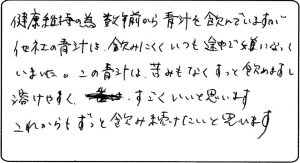 健康維持の為 数年前から青汁を飲んでいますが
他社の青汁は、飲みにくく いつも途中で嫌になって
いました。この青汁は、苦みもなくすっと飲めますし
溶けやすく、すごくいいと思います
これからもずっと飲み続けたいと思います